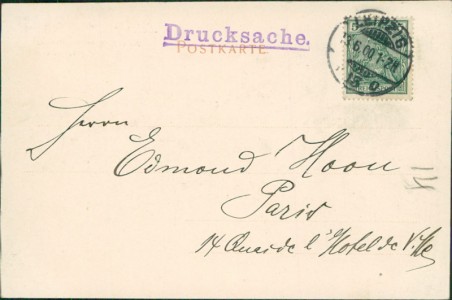 Drucksache.
POSTKARTE
LEIPZIG
13 O
Herrn
Edmond Hoon
Paris
14 Quai de l'Hotel de Ville